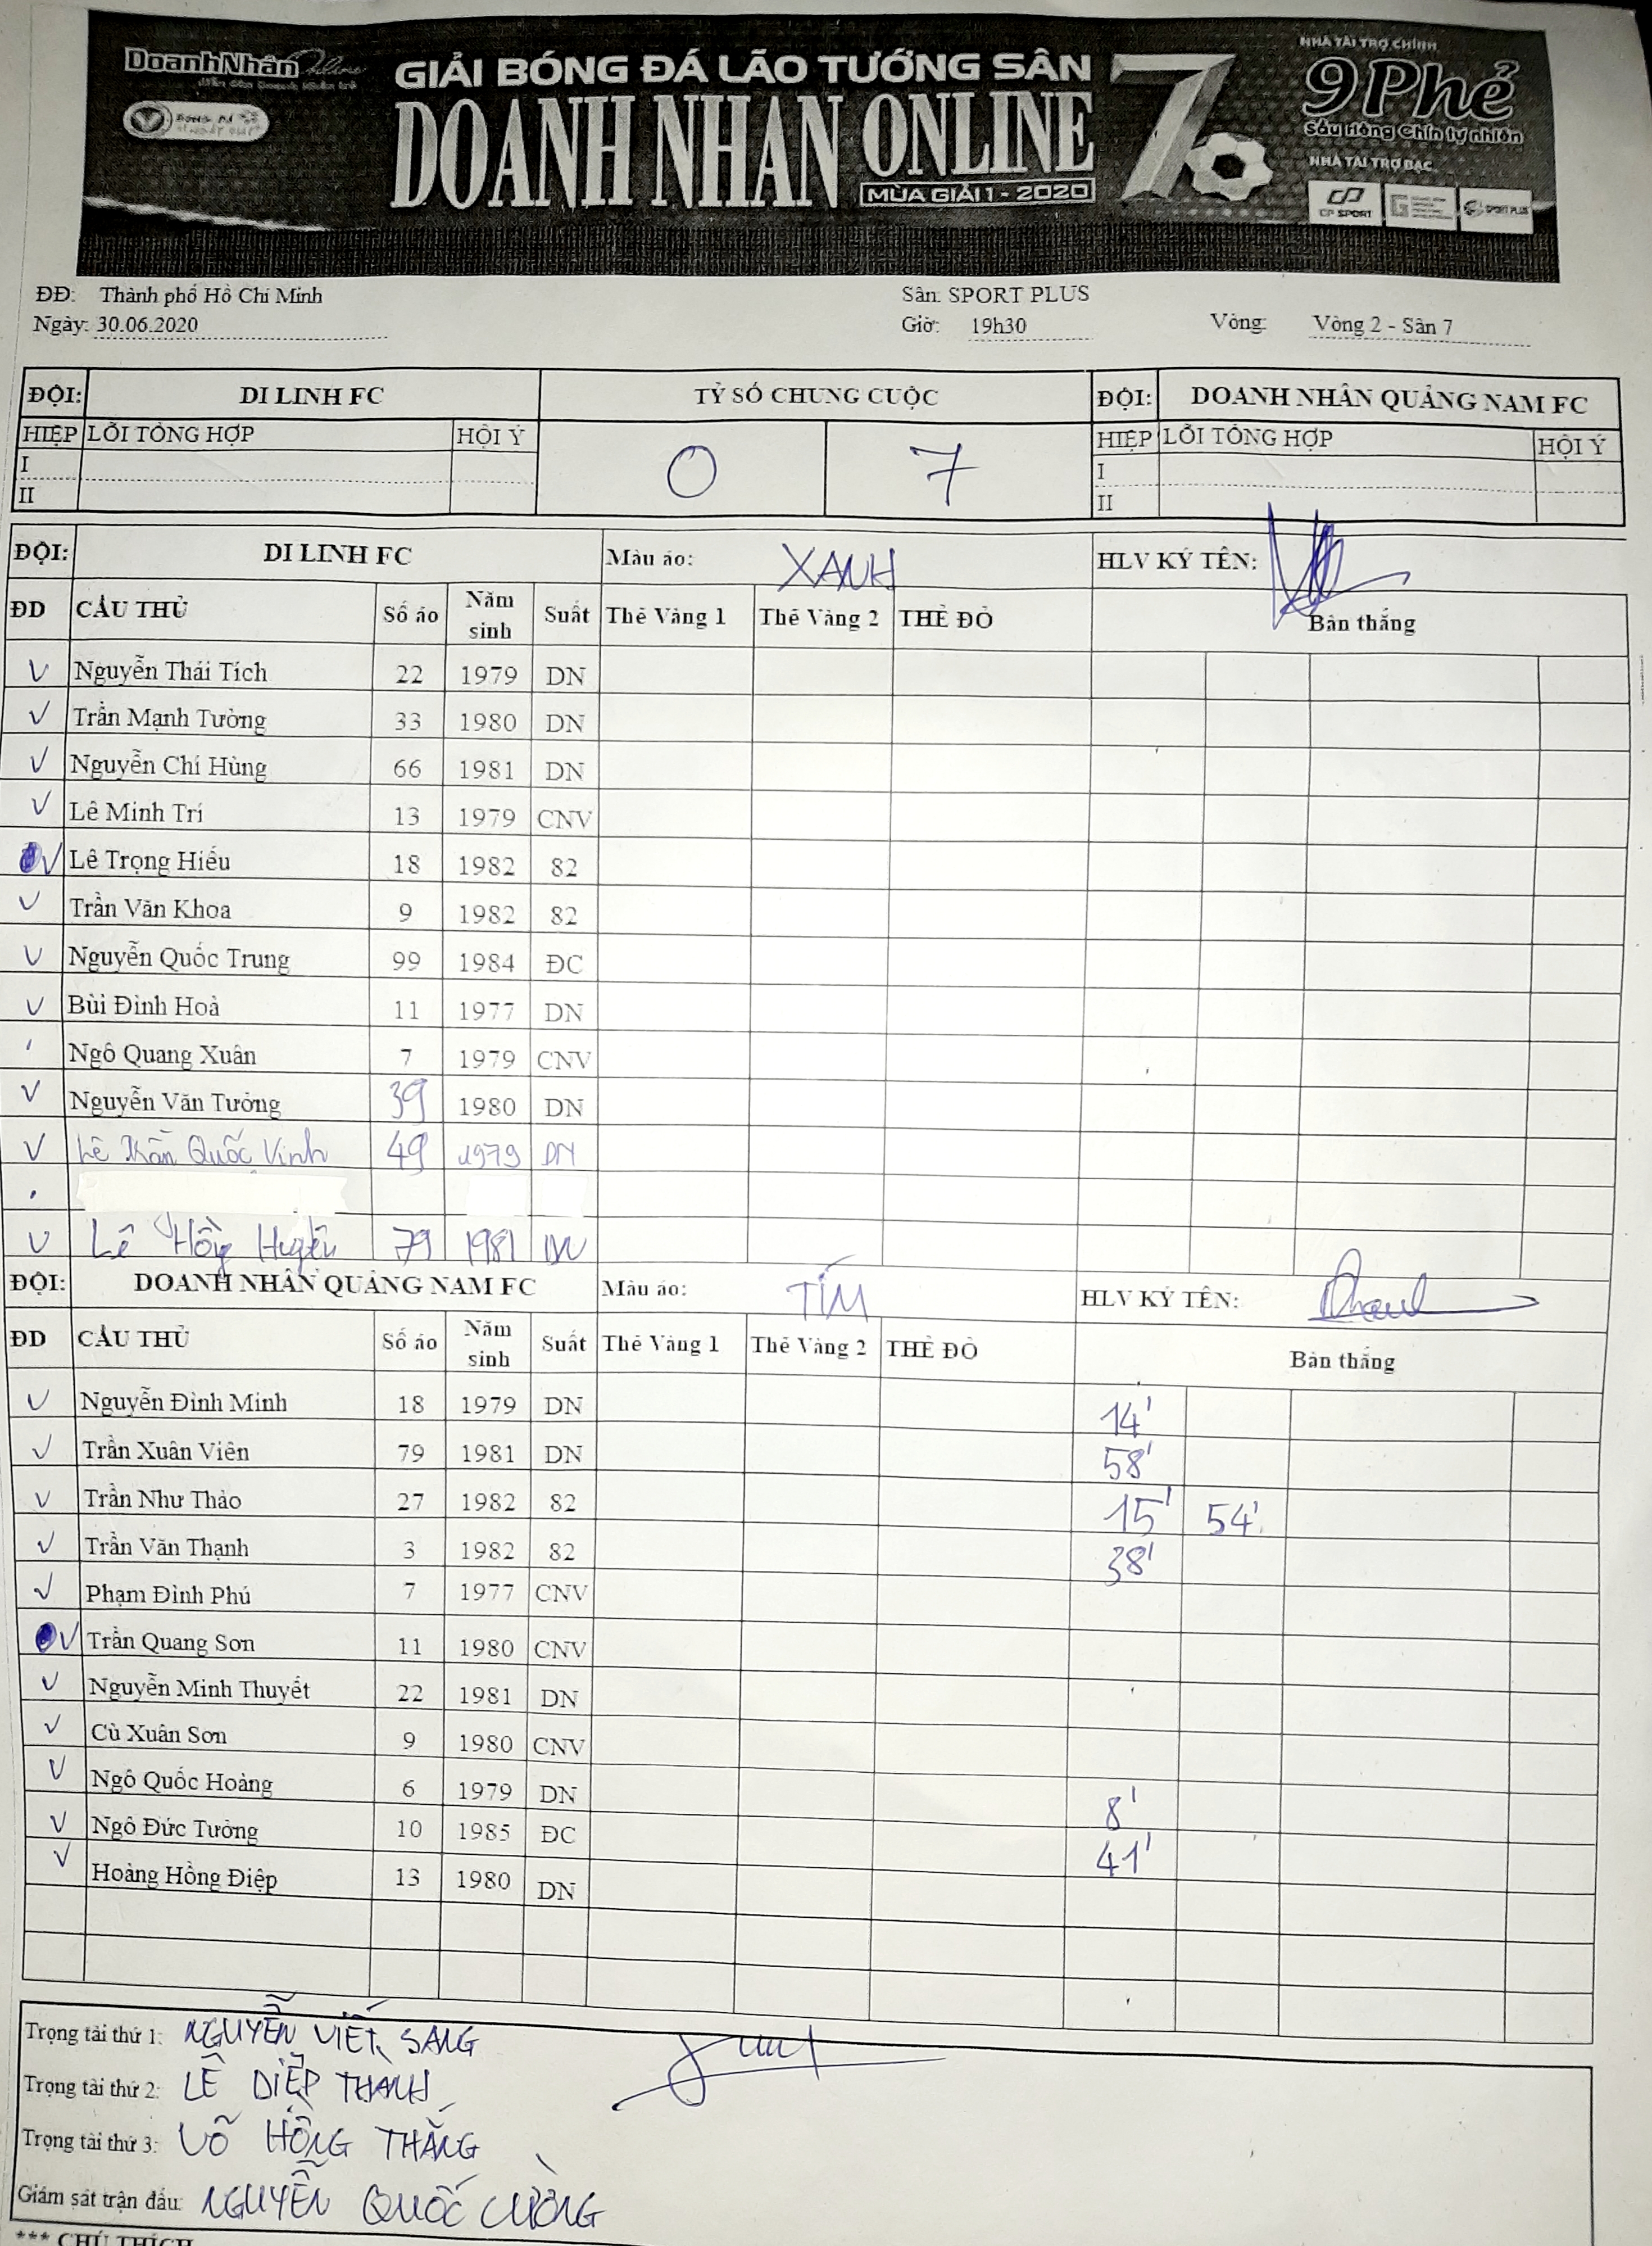 DoanhNhân Online
GIẢI BÓNG ĐÁ LÃO TƯỚNG SÂN 7
DOANH NHAN ONLINE
MÙA GIẢI 1 - 2020
NHÀ TÀI TRỢ CHÍNH
9 Phẻ
Sầu riêng Chín tự nhiên
NHÀ TÀI TRỢ BẠC
CP SPORT
SPORT PLUS
ĐĐ: Thành phố Hồ Chí Minh Sân: SPORT PLUS
Ngày: 30.06.2020 Giờ: 19h30 Vòng: Vòng 2 - Sân 7
ĐỘI: DI LINH FC TỶ SỐ CHUNG CUỘC ĐỘI: DOANH NHÂN QUẢNG NAM FC
HIỆP LỖI TỔNG HỢP HỘI Ý 0 7 HIỆP LỖI TỔNG HỢP HỘI Ý
I I
II II
ĐỘI: DI LINH FC Màu áo: XANH HLV KÝ TÊN:
ĐD CẦU THỦ Số áo Năm sinh Suất Thẻ Vàng 1 Thẻ Vàng 2 THẺ ĐỎ Bàn thắng
V Nguyễn Thái Tích 22 1979 DN
V Trần Mạnh Tường 33 1980 DN
V Nguyễn Chí Hùng 66 1981 DN
V Lê Minh Trí 13 1979 CNV
V Lê Trọng Hiếu 18 1982 82
V Trần Văn Khoa 9 1982 82
V Nguyễn Quốc Trung 99 1984 ĐC
V Bùi Đình Hoà 11 1977 DN
Ngô Quang Xuân 7 1979 CNV
V Nguyễn Văn Tưởng 39 1980 DN
V Lê Trần Quốc Vinh 49 1979 DN
V Lê Hồng 79 1981 DN
ĐỘI: DOANH NHÂN QUẢNG NAM FC Màu áo: TÍM HLV KÝ TÊN:
ĐD CẦU THỦ Số áo Năm sinh Suất Thẻ Vàng 1 Thẻ Vàng 2 THẺ ĐỎ Bàn thắng
V Nguyễn Đình Minh 18 1979 DN 14'
V Trần Xuân Viên 79 1981 DN 58'
V Trần Như Thảo 27 1982 82 15' 54'
V Trần Văn Thạnh 3 1982 82 38'
V Phạm Đình Phú 7 1977 CNV
V Trần Quang Sơn 11 1980 CNV
V Nguyễn Minh Thuyết 22 1981 DN
V Cù Xuân Sơn 9 1980 CNV
V Ngô Quốc Hoàng 6 1979 DN 8'
V Ngô Đức Tưởng 10 1985 ĐC 41'
V Hoàng Hồng Điệp 13 1980 DN
Trọng tài thứ 1: NGUYỄN VIẾT SANG
Trọng tài thứ 2: LÊ DIỆP THANH
Trọng tài thứ 3: VÕ HỒNG THẮNG
Giám sát trận đấu: NGUYỄN QUỐC CƯỜNG
*** CHÚ THÍCH